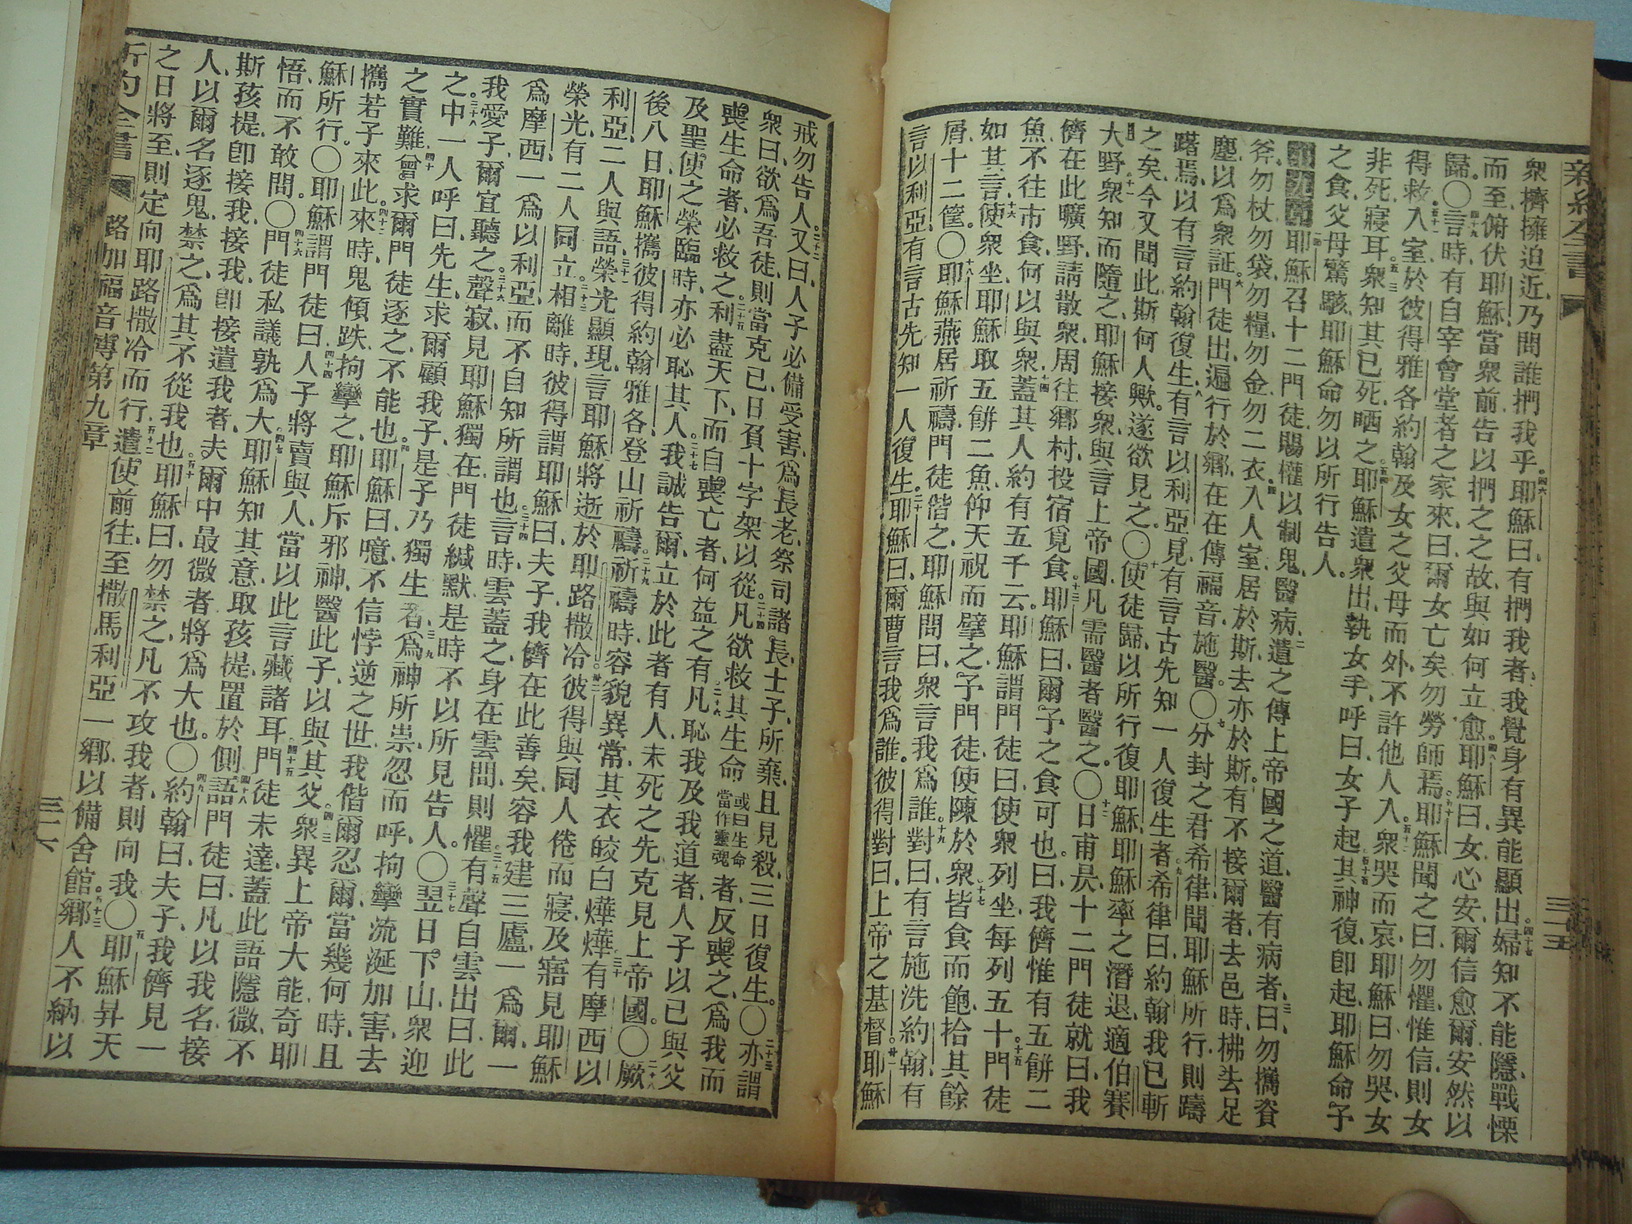 新約全書
三十五
衆擠擁迫近、乃問誰捫我乎、四六耶穌曰、有捫我者、我覺身有異能顯出、四十七婦知不能隱、戰慄
而至、俯伏耶穌當衆前、告以捫之之故、與如何立愈、四八耶穌曰、女、心安、爾信愈爾、安然以
歸。〇四十九言時、有自宰會堂者之家來、曰、爾女亡矣、勿勞師焉、五十耶穌聞之曰、勿懼、惟信、則女
得救、五十一入室、於彼得雅各約翰、及女之父母而外、不許他人入、五十二衆哭而哀、耶穌曰、勿哭、女
非死、寢耳、五三衆知其已死、哂之、五四耶穌遣衆出、執女手、呼曰、女子起、五十五其神復、卽起、耶穌命予
之食、父母驚駭、耶穌命勿以所行告人。
耶穌召十二門徒、賜權以制鬼醫病、二遣之傳上帝國之道、醫有病者、三曰、勿攜資
斧、勿杖、勿袋、勿糧、勿金、勿二衣、四入人室、居於斯、去亦於斯、五有不接爾者、去邑時、拂去足
塵、以爲衆証、六門徒出、遍行於鄉、在在傳福音施醫。〇七分封之君希律、聞耶穌所行、則躊
躇焉、以有言約翰復生、八有言以利亞見、有言古先知一人復生者、九希律曰、約翰我已斬
之矣、今又聞此、斯何人歟、遂欲見之。〇十使徒歸、以所行復耶穌、耶穌率之潛退、適伯賽
大野、十一衆知而隨之、耶穌接衆、與言上帝國、凡需醫者醫之。〇十二日甫昃、十二門徒就曰、我
儕在此曠野、請散衆、周往鄉村、投宿覓食、十三耶穌曰、爾予之食可也、曰、我儕惟有五餅二
魚、不往市食、何以與衆、十四蓋其人約有五千云、耶穌謂門徒曰、使衆列坐、每列五十、十五門徒
如其言、使衆坐、十六耶穌取五餅二魚、仰天祝而擘之、予門徒、使陳於衆、十七皆食而飽、拾其餘
屑十二筐。〇十八耶穌燕居祈禱、門徒偕之、耶穌問曰、衆言我爲誰、十九對曰、有言施洗約翰、有
言以利亞、有言古先知一人復生、二十耶穌曰、爾曹言我爲誰、彼得對曰、上帝之基督、廿一耶穌
戒勿告人、二十二又曰、人子必備受害、爲長老祭司諸長士子所棄、且見殺、三日復生。〇二十三亦謂
衆曰、欲爲吾徒、則當克己、日負十字架以從、二十四凡欲救其生命或曰生命當作靈魂者、反喪之、爲我而
喪生命者、必救之、二十五利盡天下、而自喪亡者、何益之有、二十六凡恥我及我道者、人子以已與父
及聖使之榮臨時、亦必恥其人、二十七我誠告爾、立於此者、有人未死之先、克見上帝國。〇二十八厥
後八日、耶穌攜彼得約翰雅各登山祈禱、二十九祈禱時、容貌異常、其衣皎白燁燁、三十有摩西以
利亞二人與語、三十一榮光顯現、言耶穌將逝於耶路撒冷、卅二彼得與同人倦而寢、及寤、見耶穌
榮光、有二人同立、三十三相離時、彼得謂耶穌曰、夫子、我儕在此善矣、容我建三廬、一爲爾、一
爲摩西、一爲以利亞、而不自知所謂也、三十四言時、雲蓋之、身在雲間、則懼、三十五有聲自雲出曰、此
我愛子、爾宜聽之、三十六聲寂、見耶穌獨在、門徒緘默、是時不以所見告人。〇三十七翌日、下山、衆迎
之、三十八中一人呼曰、先生求爾顧我子、是子乃獨生者、三九爲神所祟、忽而呼、拘攣流涎、加害、去
之實難、四十曾求爾門徒逐之、不能也、四一耶穌曰、噫、不信悖逆之世、我偕爾忍爾、當幾何時、且
攜若子來此、四十二來時、鬼傾跌拘攣之、耶穌斥邪神、醫此子、以與其父、四三衆異上帝大能、奇耶
穌所行。〇耶穌謂門徒曰、四十四人子將賣與人、當以此言藏諸耳、四十五門徒未達、蓋此語隱微、不
悟、而不敢問。〇四十六門徒私議孰爲大、四七耶穌知其意、取孩提置於側、四十八語門徒曰、凡以我名接
斯孩提、卽接我、接我、卽接遣我者、夫爾中最微者、將爲大也。〇四九約翰曰、夫子、我儕見一
人、以爾名逐鬼、禁之、爲其不從我也、五十耶穌曰、勿禁之、凡不攻我者、則向我。〇五一耶穌昇天
之日將至、則定向耶路撒冷而行、五十二遣使前往、至撒馬利亞一鄉、以備舍館、五十三鄉人不納、以
新約全書 路加福音傳第九章 三十六